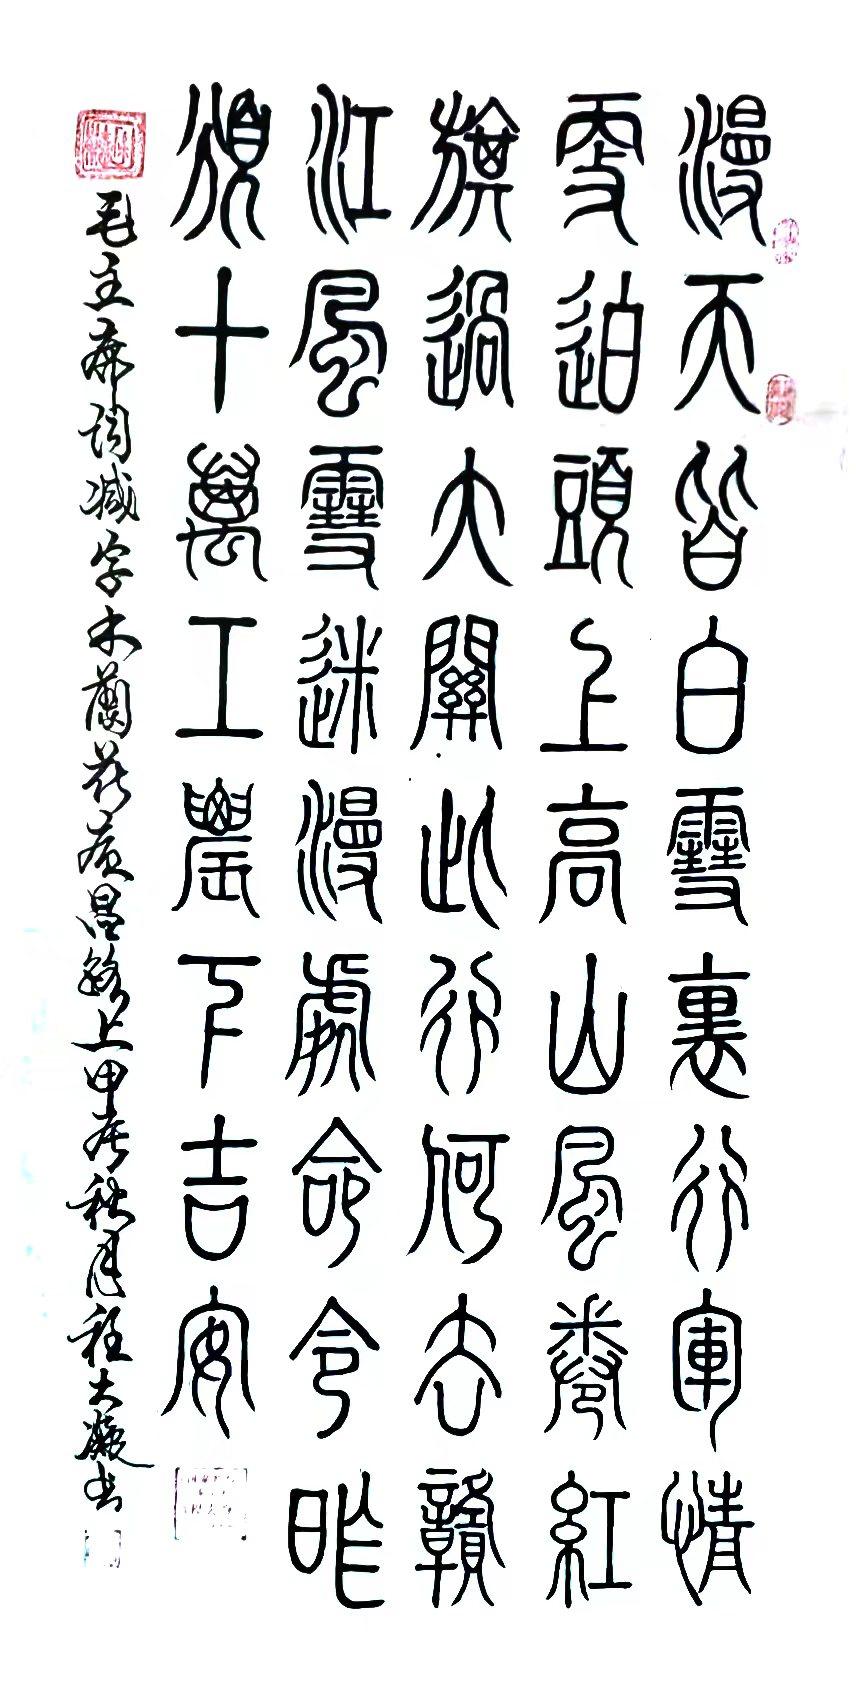 漫天皆白雪裏行軍情
更迫頭上高山風卷紅
旗過大關此行何去贛
江風雪迷漫處命令昨
頒十萬工農下吉安
毛主席詞减字木蘭花廣昌路上甲辰秋月程大书